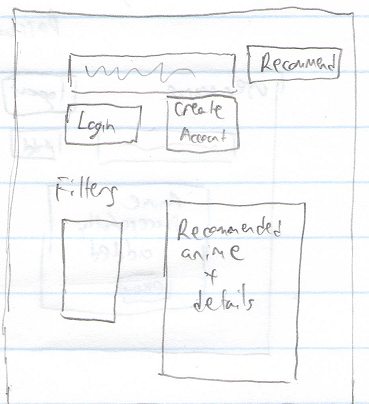 Recommend
Login
Create
Account
Filters
Recommended
anime
+
details